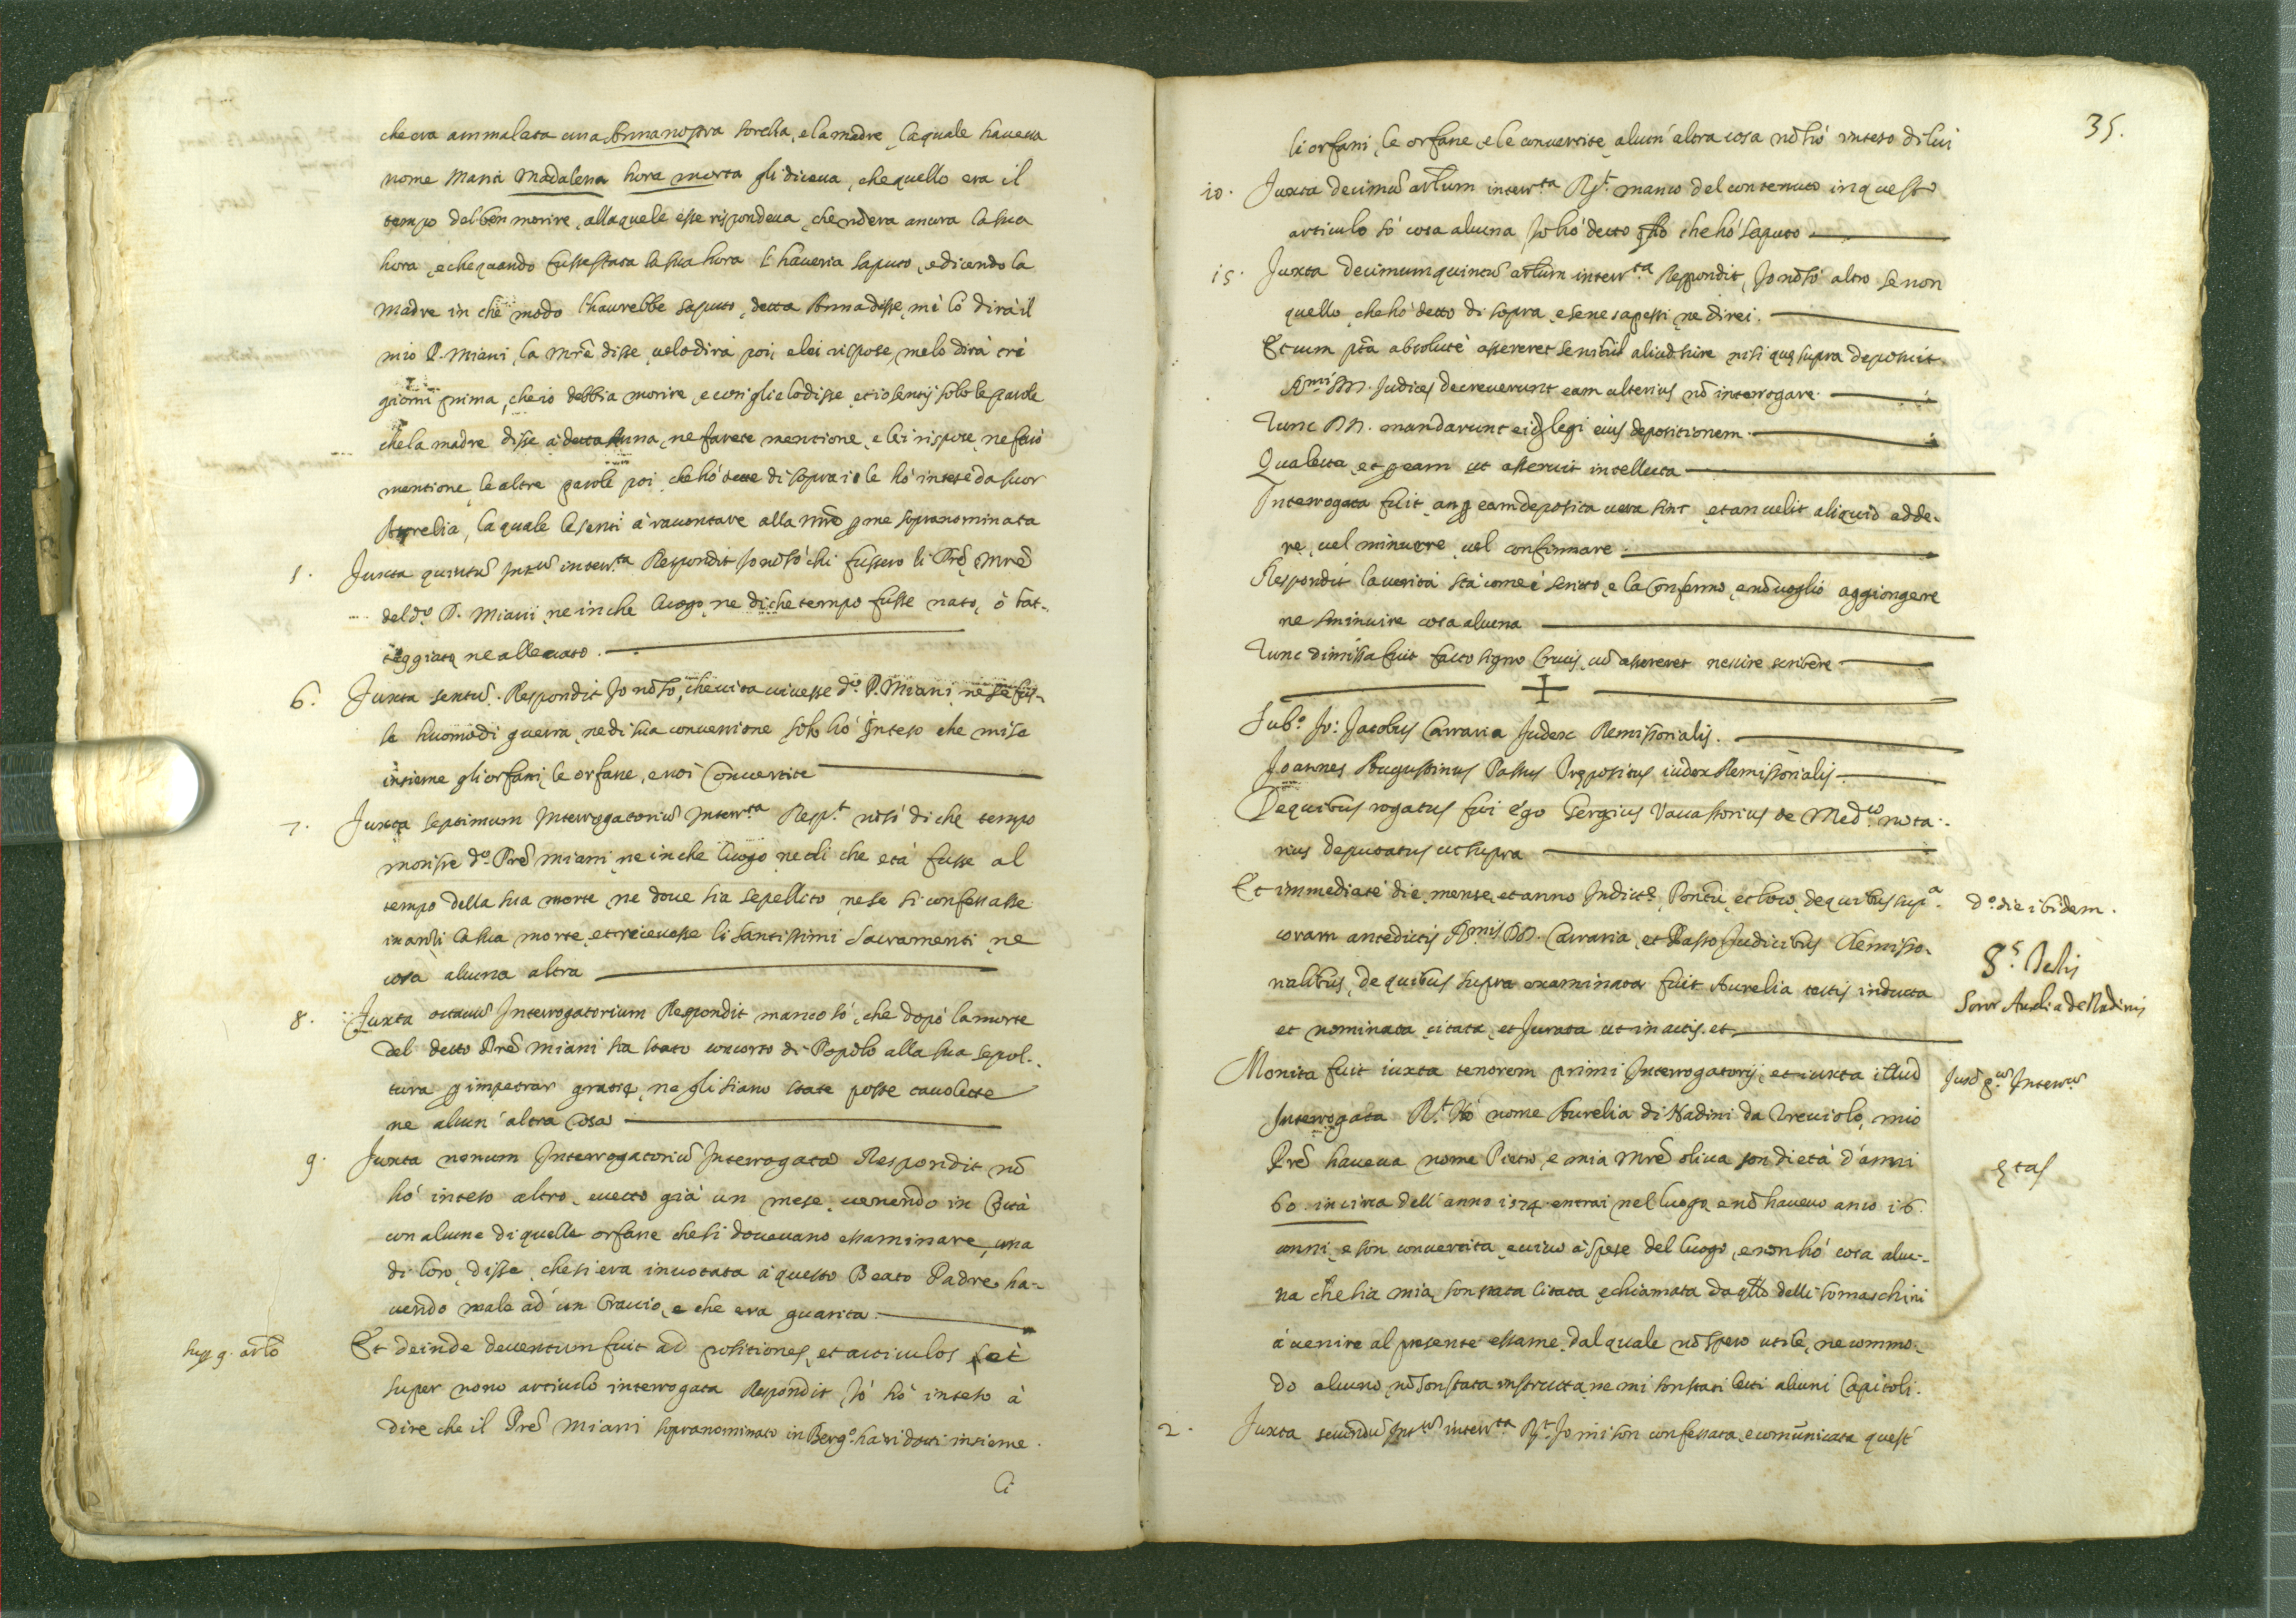 che era ammalata una Anna nostra sorella, e la madre, la quale haveva
nome Maria Madalena hora morta gli diceva, che quello era il
tempo del ben morire, alla quale esse rispondeva, che nō era ancora la sua
hora, e che quando fusse stata la sua hora l'haveria saputo, e dicendo la
Madre in che modo l'havrebbe saputo, detta Anna disse, mè lo dirà il
mio P. Miani, la Mrē disse, velo dirà poi, e lei rispose, me lo dirà trè
giorni prima, che io debbia morire, e così glie lo disse, et io sentij solo le parole
che la madre disse à detta Anna, ne farete mentione, e lei rispose, ne farò
mentione, le altre parole poi, che hò dette di sopra io le hò intese da suor
Aurelia, la quale le sentì à raccontare alla Mrē pme sopranominata
5. Juxta quintū Intū interr.ta Respondit Io nō sò chi fussero li Prē, e Mrē
del d.o P. Miani, ne in che luogo, ne di che tempo fusse nato, ò bat-
teggiato, ne allevato.
6. Juxta sextū. Respondit Io nō sò, che vita vivesse d.o P. Miani, ne se fus-
se huomo di guerra, ne di sua conversione solo hò inteso che mise
insieme gli orfani, le orfane, e noi Convertite
7. Juxta septimum Interrogatoriū Interr.ta Resp.t nō sò di che tempo
morisse d.o Prē Miani, ne in che luogo, ne di che età fusse al
tempo della sua morte, ne dove sia sepellito, ne se si confessasse
inanzi la sua morte, et ricevesse li santissimi Sacramenti, ne
cosa alcuna altra
8. Juxta octavū Interrogatorium Respondit manco sò, che dopò la morte
del detto Prē Miani sia stato concorso di Popolo alla sua sepol-
tura p impetrar gratie, ne gli siano state poste tavolette
ne alcun'altra Cosa
9. Juxta nonum Interrogatoriū Interrogata Respondit nō
hò inteso altro, eccetto già un mese, venendo in Città
con alcune di quelle orfane che si dovevano essaminare, una
di loro, disse, che si era invotata à questo Beato Padre, ha-
vendo male ad un bracio, e che era guarita
sup 9. artlo Et deinde deventum fuit ad positiones, et articulos, et
super nono articulo interrogata Respondit, Iò hò inteso à
dire che il Prē Miani sopranominato in Berg.o ha ridotti insieme
li
35.
li orfani, le orfane, e le convertite, alcun'altra cosa nō hò inteso di lui
10. Juxta decimū artlum interr.ta R.t manco del contenuto in questo
articulo sò cosa alcuna Io hò detto qllo che hò saputo
15. Juxta decimumquintū artlum interr.ta Respondit, Io nō sò altro se non
quello, che hò detto di sopra, e se ne sapessi, ne direi.
Et cum pta absolutè assereret se nihil aliud scire nisi quę supra deposuit.
R.mi DD. Judices decreverunt eam ulterius nō interrogare.
Tunc DD. mandarunt ei legi eius depositionem.
Qua lecta, et p eam ut asseruit intellecta
Interrogata fuit, an p eam deposita vera sint, et an velit aliquid adde-
re, vel minuere, vel confirmare.
Respondit la verità stà come è scritto, e la Confermo, e nō voglio aggiongere
ne sminuire cosa alcuna
Tunc dimissa fuit facto signo Crucis, cū assereret nescire scribere
+
Sub.o Jo: Jacobus Carrara Judex Remissorialis.
Joannes Augustinus Pastus Prępositus iudex Remissorialis.
De quibus rogatus fui ego Sergius Vavassorius de Med.co nota-
rius deputatus ut supra
Et immediatè die, mense, et anno Indict.e, Pontū, et loco, de quibus sup.a
coram antedictis R.mis DD. Carraria, et Pasto Judicibus Remisso-
rialibus, de quibus supra examinata fuit Aurelia testis inducta
et nominata, citata, et Jurata ut in actis. et
D.o die ibidem.
8.s Testis
Soror Aurelia de Nadinis
Monita fuit iuxta tenorem primi Interrogatorij, et iuxta illud
Interrogata R.t Hò nome Aurelia di Nadini da Treviolo, mio
Prē haveva nome Pietro, e mia Mrē oliva son di età d'anni
60. in circa dell'anno 1574. entrai nel luogo, e nō havevo anco 16.
anni, e son convertita, e vivo à spese del luogo, e non hò cosa alcu-
na che sia mia, son stata citata, e chiamata da qllo delli somaschini
à venire al presente essame, dal quale nō spero utile, ne commo-
do alcuno, nō son stata instrutta, ne mi son stati letti alcuni Capitoli.
ętas
2. Juxta secundū Int.m interr.ta R.t Io mi son confessata, e comunicata quest'